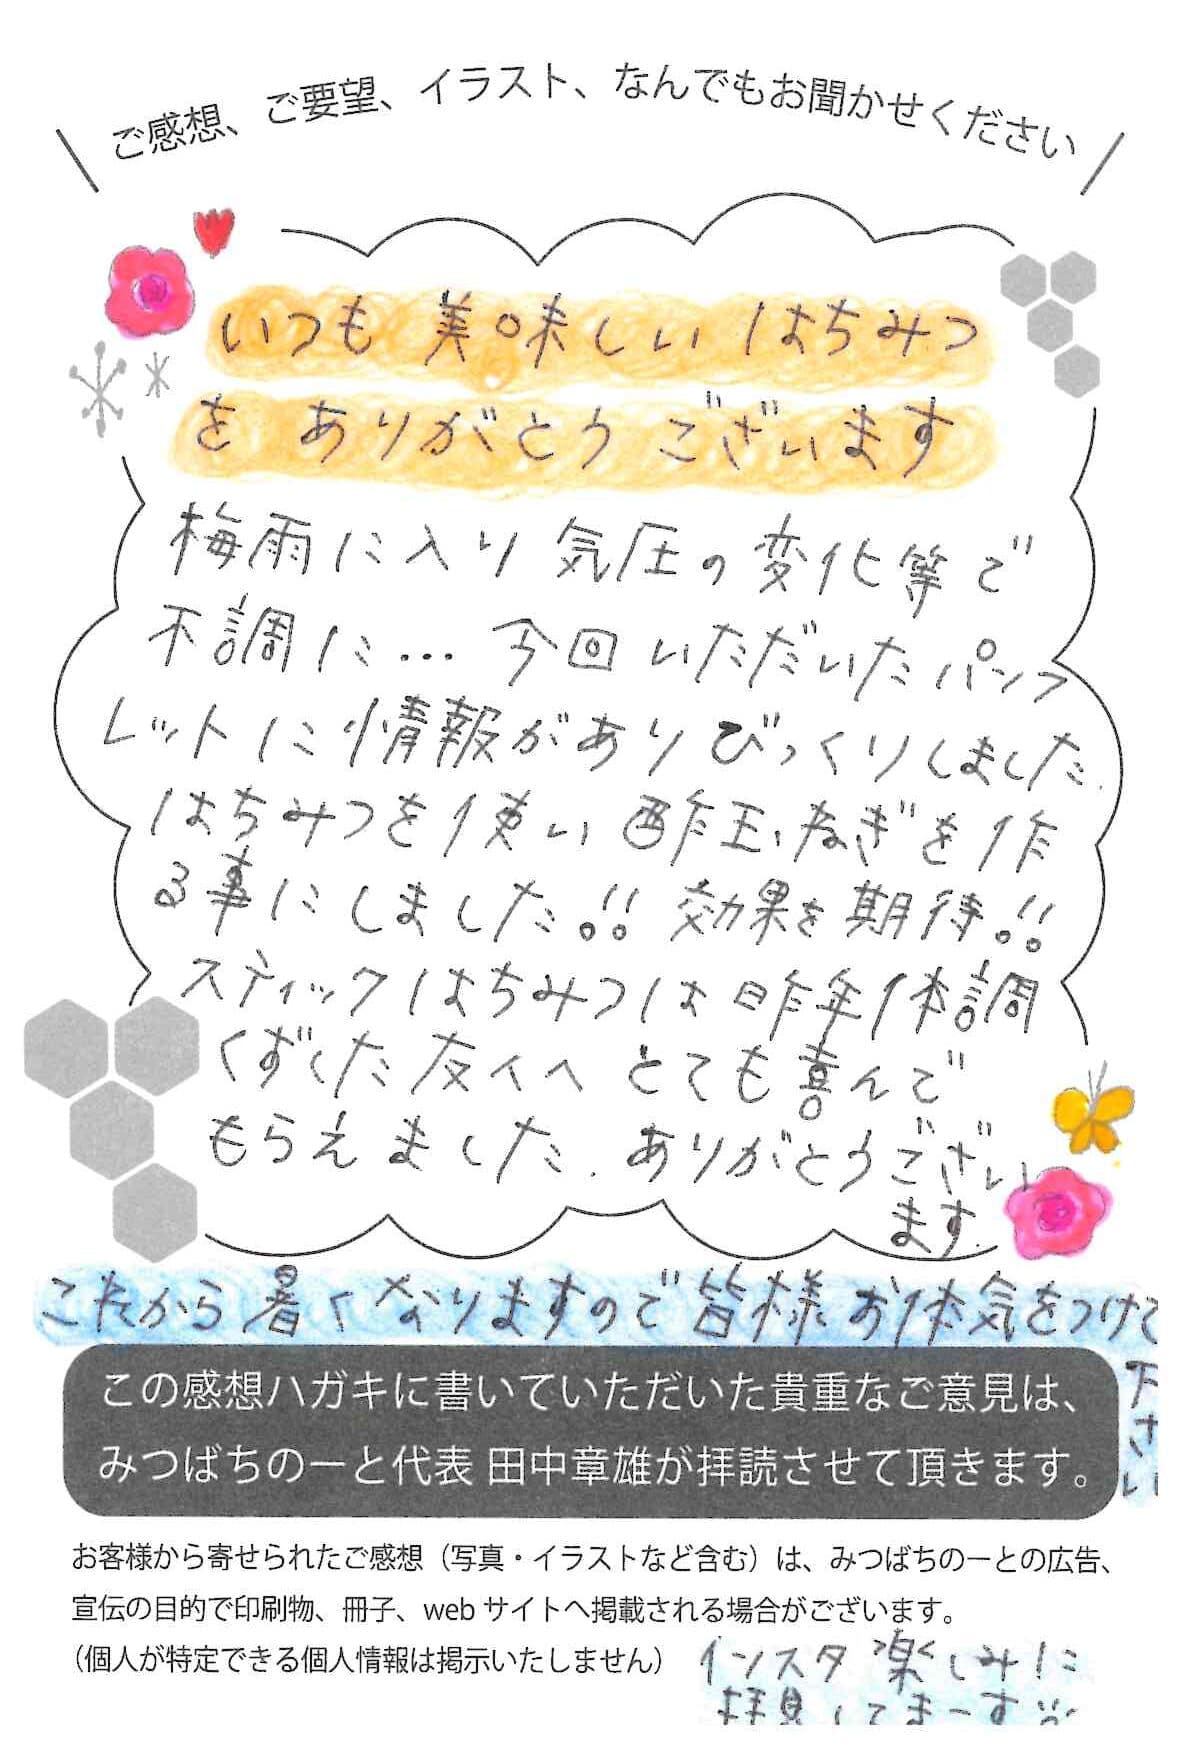 ご感想、ご要望、イラスト、なんでもお聞かせください
いつも美味しいはちみつ
を ありがとうございます
梅雨に入り気圧の変化等で
不調に…今回いただいたパンフ
レットに情報がありびっくりしました.
はちみつを使い酢玉ねぎを作
る事にしました!! 効果を期待!!
スティックはちみつは昨年体調
くずした友人へとても喜んで
もらえました. ありがとうござい
ます.
これから暑くなりますので皆様お体気をつけて
下さい
この感想ハガキに書いていただいた貴重なご意見は、
みつばちのーと代表 田中章雄が拝読させて頂きます。
お客様から寄せられたご感想（写真・イラストなど含む）は、みつばちのーとの広告、
宣伝の目的で印刷物、冊子、webサイトへ掲載される場合がございます。
（個人が特定できる個人情報は掲示いたしません）
インスタ楽しみに
拝見してまーす